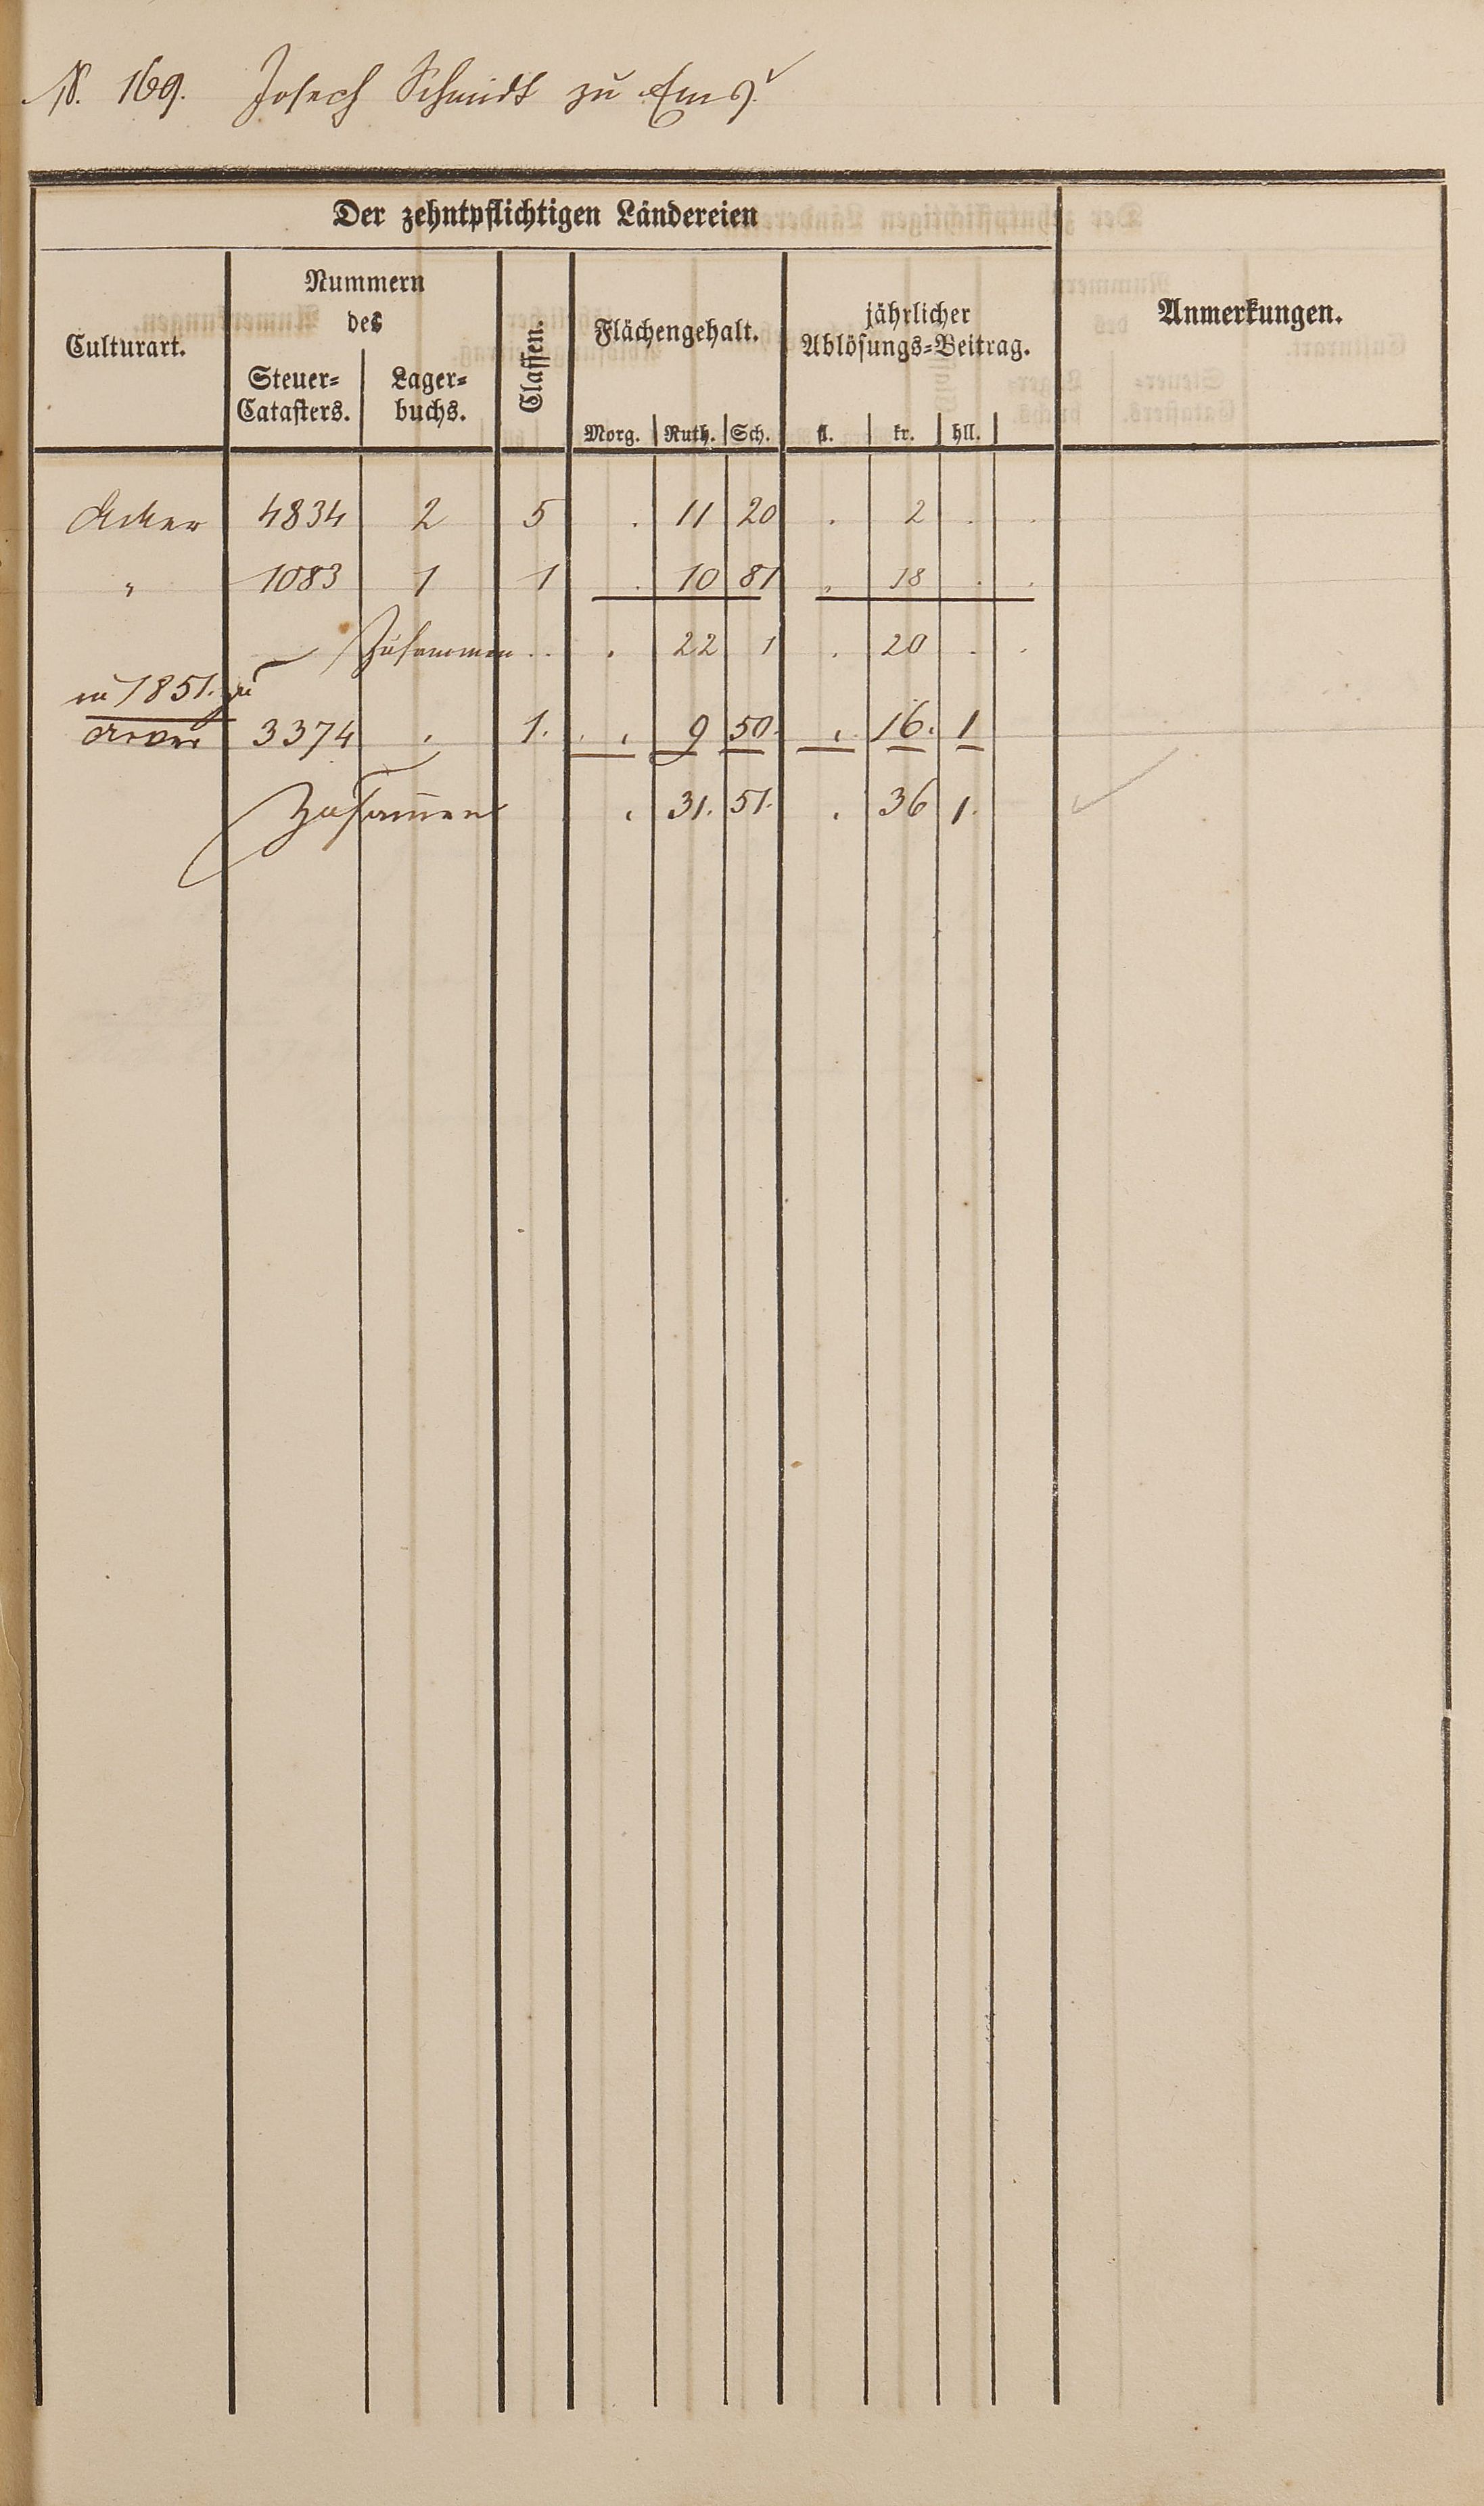 N. 169. Joseph Schmidt zu Ems
Der zehntpflichtigen Ländereien
Culturart.
Nummern
des
Steuer=
Catasters.
Lager=
buchs.
Classen.
Flächengehalt.
Morg. Ruth. Sch.
jährlicher
Ablösungs=Beitrag.
fl. kr. hll.
Anmerkungen.
Acker 4834 2 5 . 11 20 . 2 . .
" 1083 1 1 . 10 81 . 18 . .
Zusammen . . . 22 1 . 20 . .
1851. zu
Acker 3374 . 1. . . 9 50. . 16. 1
Zusam̅en . 31. 51. . 36 1.